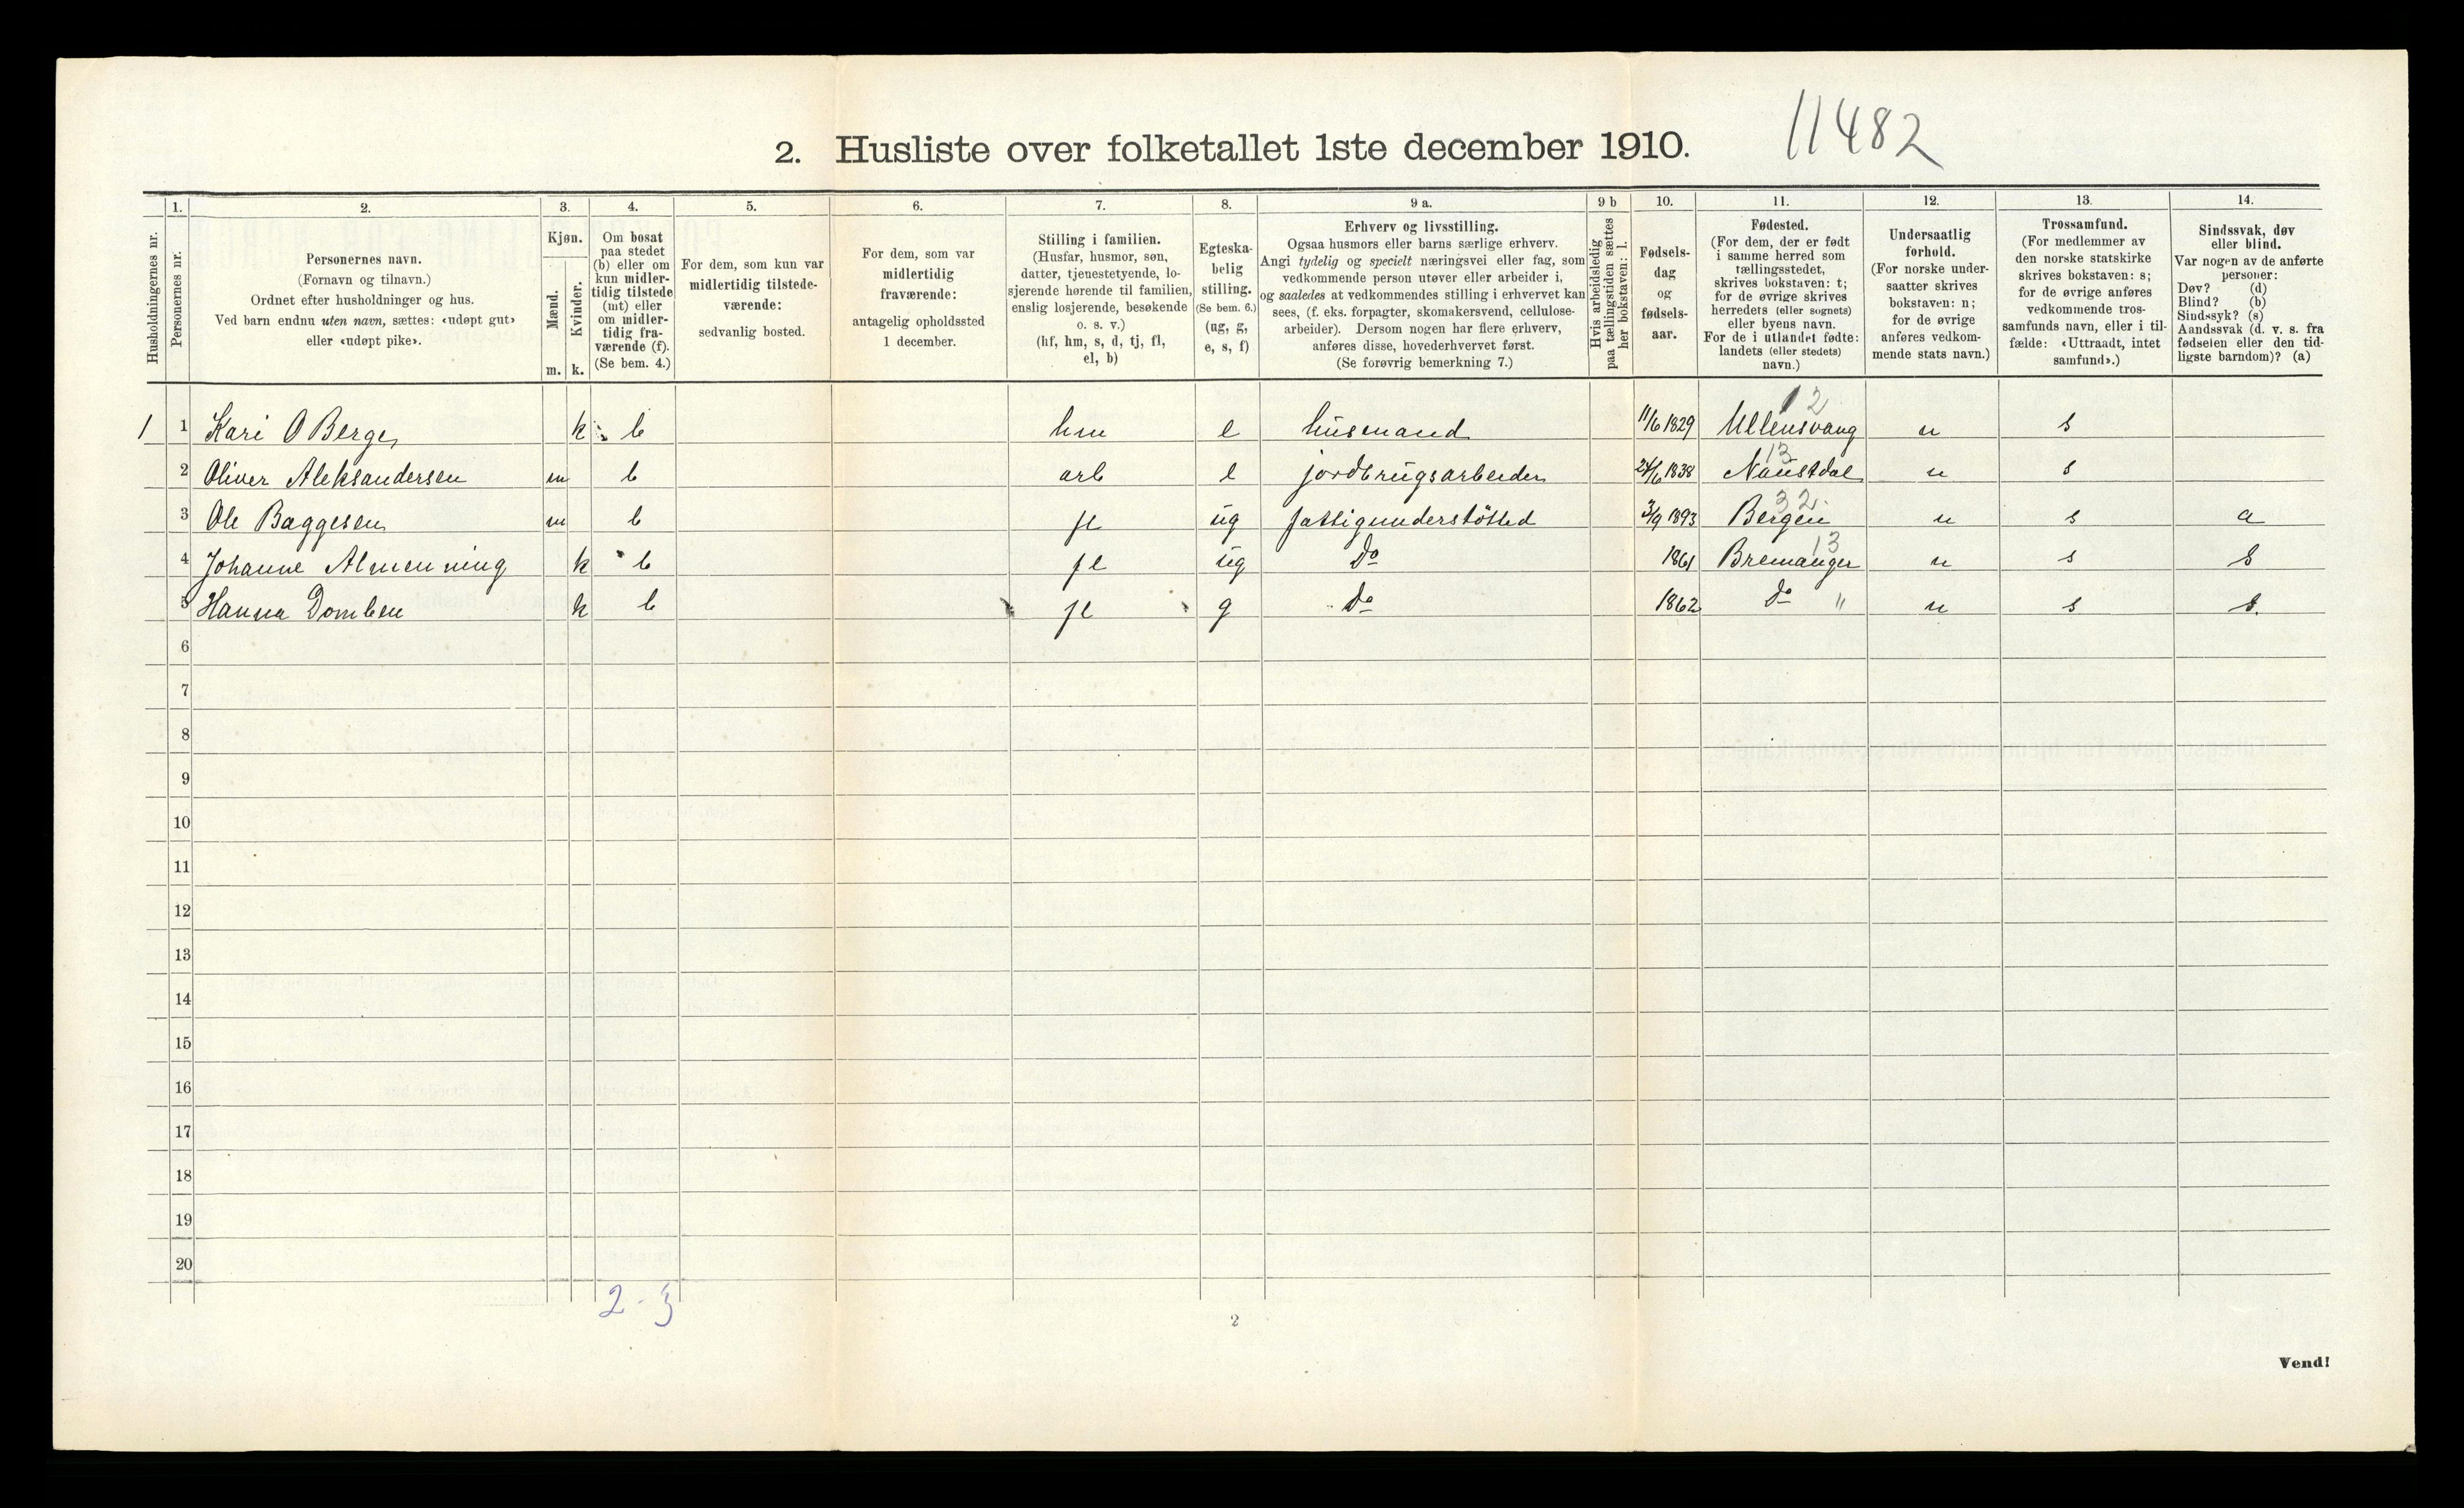 2. Husliste over folketallet 1ste december 1910. 11482
Husholdningernes nr.
1.
Personernes nr.
2.
Personernes navn.
(Fornavn og tilnavn.)
Ordnet efter husholdninger og hus.
Ved barn endnu uten navn, sættes: «udøpt gut»
eller «udøpt pike».
3.
Kjøn.
Mænd.
Kvinder.
m. k.
4.
Om bosat
paa stedet
(b) eller om
kun midler-
tidig tilstede
(mt) eller
om midler-
tidig fra-
værende (f).
(Se bem. 4.)
5.
For dem, som kun var
midlertidig tilstede-
værende:
sedvanlig bosted.
6.
For dem, som var
midlertidig
fraværende:
antagelig opholdssted
1 december.
7.
Stilling i familien.
(Husfar, husmor, søn,
datter, tjenestetyende, lo-
sjerende hørende til familien,
enslig losjerende, besøkende
o. s. v.)
(hf, hm, s, d, tj, fl,
el, b)
8.
Egteska-
belig
stilling.
(Se bem. 6.)
(ug, g,
e, s, f)
9 a.
Erhverv og livsstilling.
Ogsaa husmors eller barns særlige erhverv.
Angi tydelig og specielt næringsvei eller fag, som
vedkommende person utøver eller arbeider i,
og saaledes at vedkommendes stilling i erhvervet kan
sees, (f. eks. forpagter, skomakersvend, cellulose-
arbeider). Dersom nogen har flere erhverv,
anføres disse, hovederhvervet først.
(Se forøvrig bemerkning 7.)
9 b
Hvis arbeidsledig
paa tællingstiden sættes
her bokstaven: l.
10.
Fødsels-
dag
og
fødsels-
aar.
11.
Fødested.
(For dem, der er født
i samme herred som
tællingsstedet,
skrives bokstaven: t;
for de øvrige skrives
herredets (eller sognets)
eller byens navn.
For de i utlandet fødte:
landets (eller stedets)
navn.)
12.
Undersaatlig
forhold.
(For norske under-
saatter skrives
bokstaven: n;
for de øvrige
anføres vedkom-
mende stats navn.)
13.
Trossamfund.
(For medlemmer av
den norske statskirke
skrives bokstaven: s;
for de øvrige anføres
vedkommende tros-
samfunds navn, eller i til-
fælde: «Uttraadt, intet
samfund».)
14.
Sindssvak, døv
eller blind.
Var nogen av de anførte
personer:
Døv? (d)
Blind? (b)
Sindssyk? (s)
Aandssvak (d. v. s. fra
fødselen eller den tid-
ligste barndom)? (a)
12
1 1 Kari O Berge k b hm e husmand 11/6 1829 Ullensvang n s
13
2 Oliver Aleksandersen m b arb e jordbrugsarbeider 24/6 1838 Naustdal n s
32
3 Ole Baggesen m b fl ug fattigunderstötted 3/9 1893 Bergen n s a
13
4 Johanne Almenning k b fl ug do 1861 Bremanger n s S
5 Hanna Domben k b fl g do 1862 do " n s S.
6
7
8
9
10
11
12
13
14
15
16
17
18
19
20
2 - 3
2
Vend!